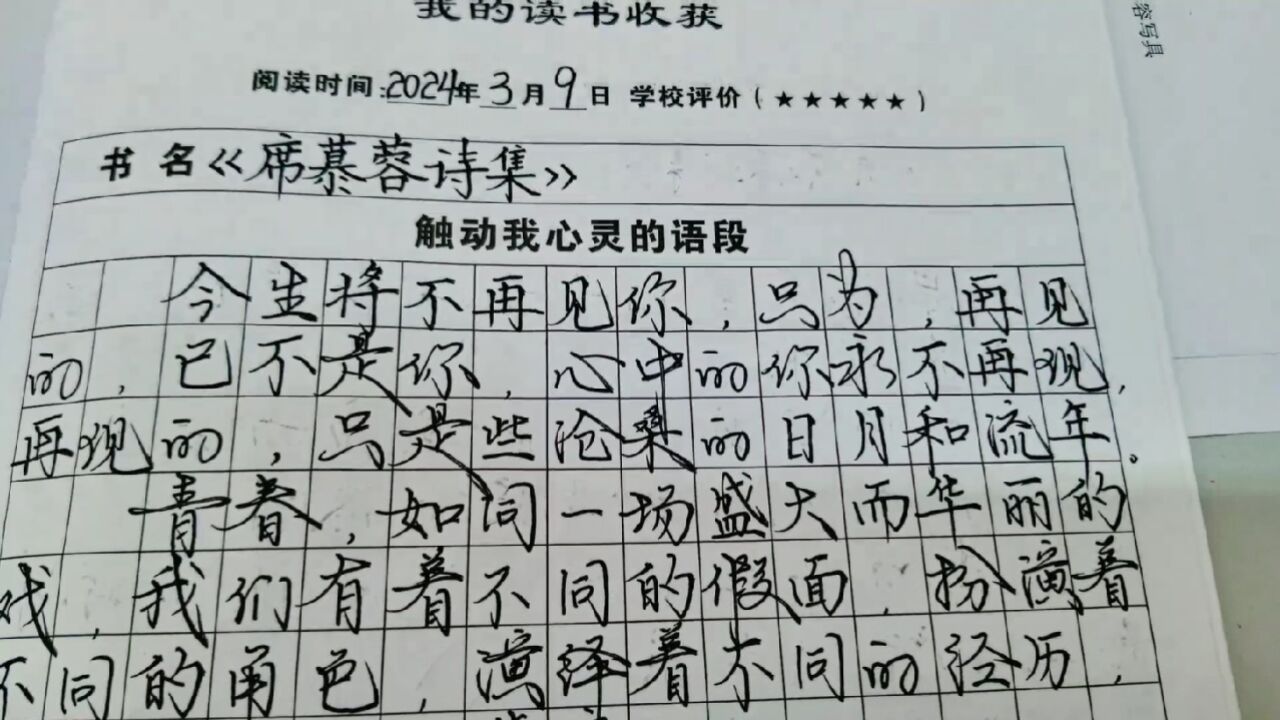 我的读书收获
阅读时间:2024年3月9日 学校评价(★★★★★)
书名《席慕蓉诗集》
触动我心灵的语段
今生将不再见你,只为,再见
的,已不是你,心中的你永不再现,
再现的,只是些沧桑的日月和流年。
青春,如同一场盛大而华丽的
戏,我们有着不同的假面,扮演着
不同的角色,演绎着不同的经历,